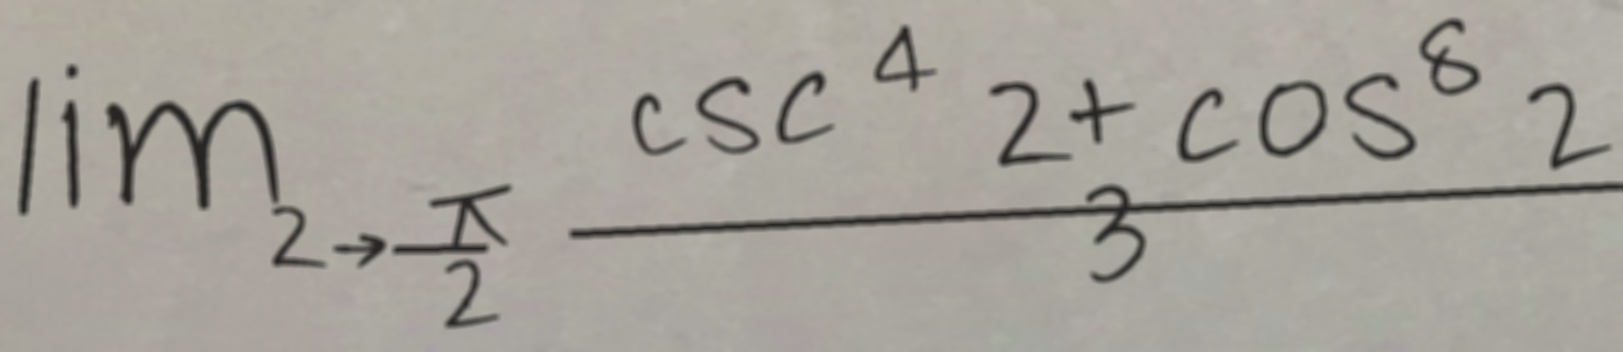 \lim_{z \to \frac{\pi}{2}} \frac{\csc^4 z + \cos^8 z}{3}